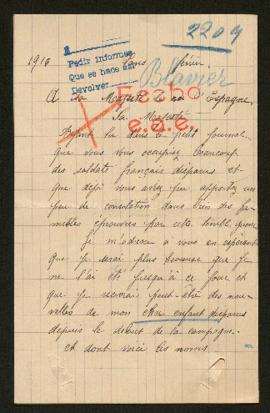 2209
1916
Pedir informes
Que se haga así
Devolver
Blavier
Fecho
e.a.e.
A Sa Majesté le roi d'Espagne
Sa Majesté
Ayant lu dans le petit journal
que vous vous occupiez beaucoup
des soldats français disparus et
que déjà vous avez pu apporter un
peu de consolation dans bien des fa-
milles éprouvées par cette terrible guerre
Je m'adresse à vous en espérant
que je serai plus heureuse que je
ne l'ai été jusqu'à ce jour et
que je recevrai peut-être des nou-
velles de mon cher enfant disparu
depuis le début de la campagne.
et dont voici les noms.